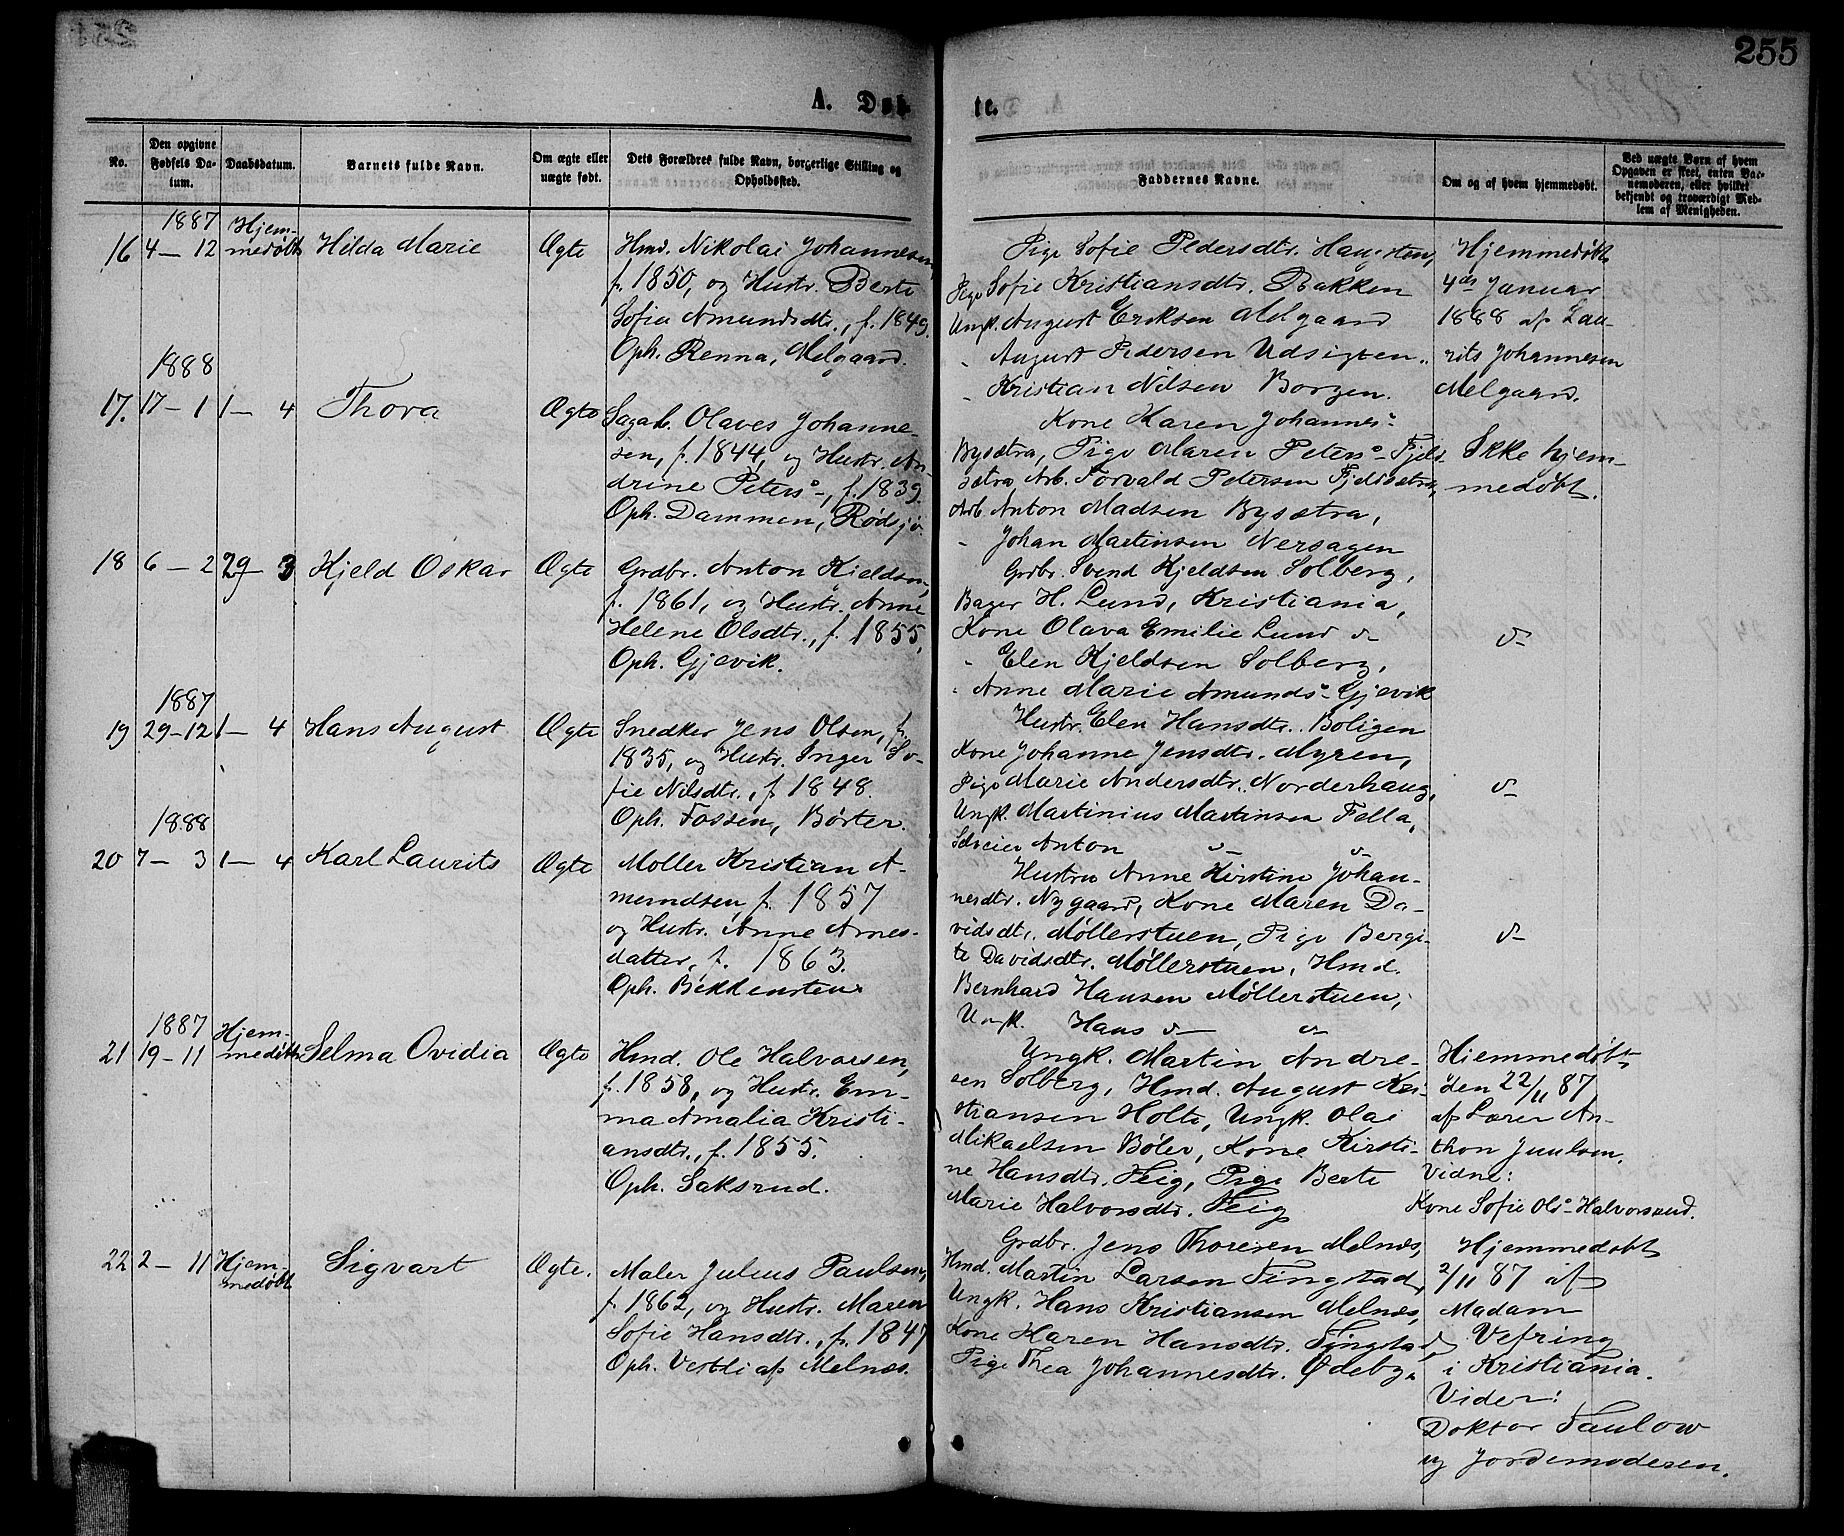 255
A. Døb
te.
No.
Den opgivne Fødsels Datum.
Daabsdatum.
Barnets fulde Navn.
Om ægte eller uægte født.
Dets Forældres fulde Navn, borgerlige Stilling og Opholdssted.
Faddernes Navne.
Om og af hvem hjemmedøbt.
Ved uægte Børn af hvem Opgaven er skeet, enten Barnemoderen, eller hvilket bekjendt og troværdigt Medlem af Menigheden.
1887
16 4–12 Hjemmedøbt Hilda Marie Ægte
Hmd. Nikolai Johannesen,
f. 1850, og Hustr. Berte
Sofie Amundsdtr., f. 1849.
Oph. Renna, Melgaard.
Pige Sofie Pedersdtr. Haugsten,
Pige Sofie Kristiansdtr. Bakken
Ungk. August Eriksen Melgaard
" August Pedersen Udsigten
" Kristian Nilsen Borgen.
Hjemmedøbt
4de Januar
1888 af Lau-
rits Johannesen
Melgaard.
1888
17. 17–1 1–4 Thora Ægte
Sagarb. Olaves Johanne-
sen, f. 1844, og Hustr. An-
drine Peters°-, f. 1839.
Oph. Dammen, Rødsjø.
Kone Karen Johannes°
Bysætra, Pige Maren Peters°- Fjeld-
sætra, Arb. Torvald Petersen Fjeldsætra,
Arb Anton Madsen Bysætra,
" Johan Martinsen Nersagen
Ikke hjem-
medøbt.
18 6–2 29–3 Hjeld Oskar Ægte
Grdbr. Anton Kjeldsen,
f. 1861, og Hustr. Anne
Helene Olsdtr., f. 1855,
Oph. Gjevik.
Grdbr. Svend Kjeldsen Solberg,
Bager H. Lund, Kristiania,
Kone Olava Emilie Lund d-
" Elen Kjeldsen Solberg,
" Anne Marie Amunds°- Gjevik
d-
1887
19 29–12 1–4 Hans August Ægte
Snedker Jens Olsen, f.
1835, og Hustr. Inger So-
fie Nilsdtr., f. 1848.
Oph. Fossen, Børter.
Hustr. Elen Hansdtr. Boligen
Kone Johanne Jensdtr. Myren,
Pige Marie Andersdtr. Norderhaug,
Ungk. Martinius Martinsen Fella,
Selveier Anton d- d-
d-
1888
20 7–3 1–4 Karl Laurits Ægte
Møller Kristian A-
mundsen, f. 1857
og Hustr. Anne Arnes-
datter, f. 1863.
Oph. Bekkensten.
Hustru Anne Kirstine Johan-
nesdtr. Nygaard, Kone Maren Da-
vidsdtr. Møllerstuen, Pige Bergi-
te Davidsdtr. Møllerstuen, Hmd.
Bernhard Hansen Møllerstuen,
Ungk. Hans d- d-
d-
1887
21 19–11 Hjemmedøbt Selma Ovidia Ægte
Hmd. Ole Halvorsen,
f. 1858, og Hustr. Em-
ma Amalia Kristi-
ansdtr., f. 1855.
Oph. Saksrud.
Ungk. Martin Andre-
sen Solberg, Hmd. August Kri-
stiansen Holte, Ungk. Olai
Mikaelsen Bøler, Kone Kirsti-
ne Hansdtr. Teig, Pige Berte
Marie Halvorsdtr. Teig
Hjemmedøbt
den 22/11 87
af Lærer An-
thon Juulsen.
Vidne:
Kone Sofie Ols°- Halvorsrud.
22 2–11 Hjemmedøbt Sigvart Ægte.
Maler Julius Paulsen,
f. 1862, og Hustr. Maren
Sofie Hansdtr., f. 1847
Oph. Vestli af Melnæs.
Grdbr. Jens Thoresen Melnæs,
Hmd. Martin Larsen Tingstad,
Ungk. Hans Kristiansen Melnæs,
Kone Karen Hansdtr. Tingstad,
Pige Thea Johannesdtr. Ødeby.
Hjemmedøbt
2/11 87 af
Madam
Vefring
i Kristiania.
Vidner:
Doktor Faulow
og Jordemoderen.